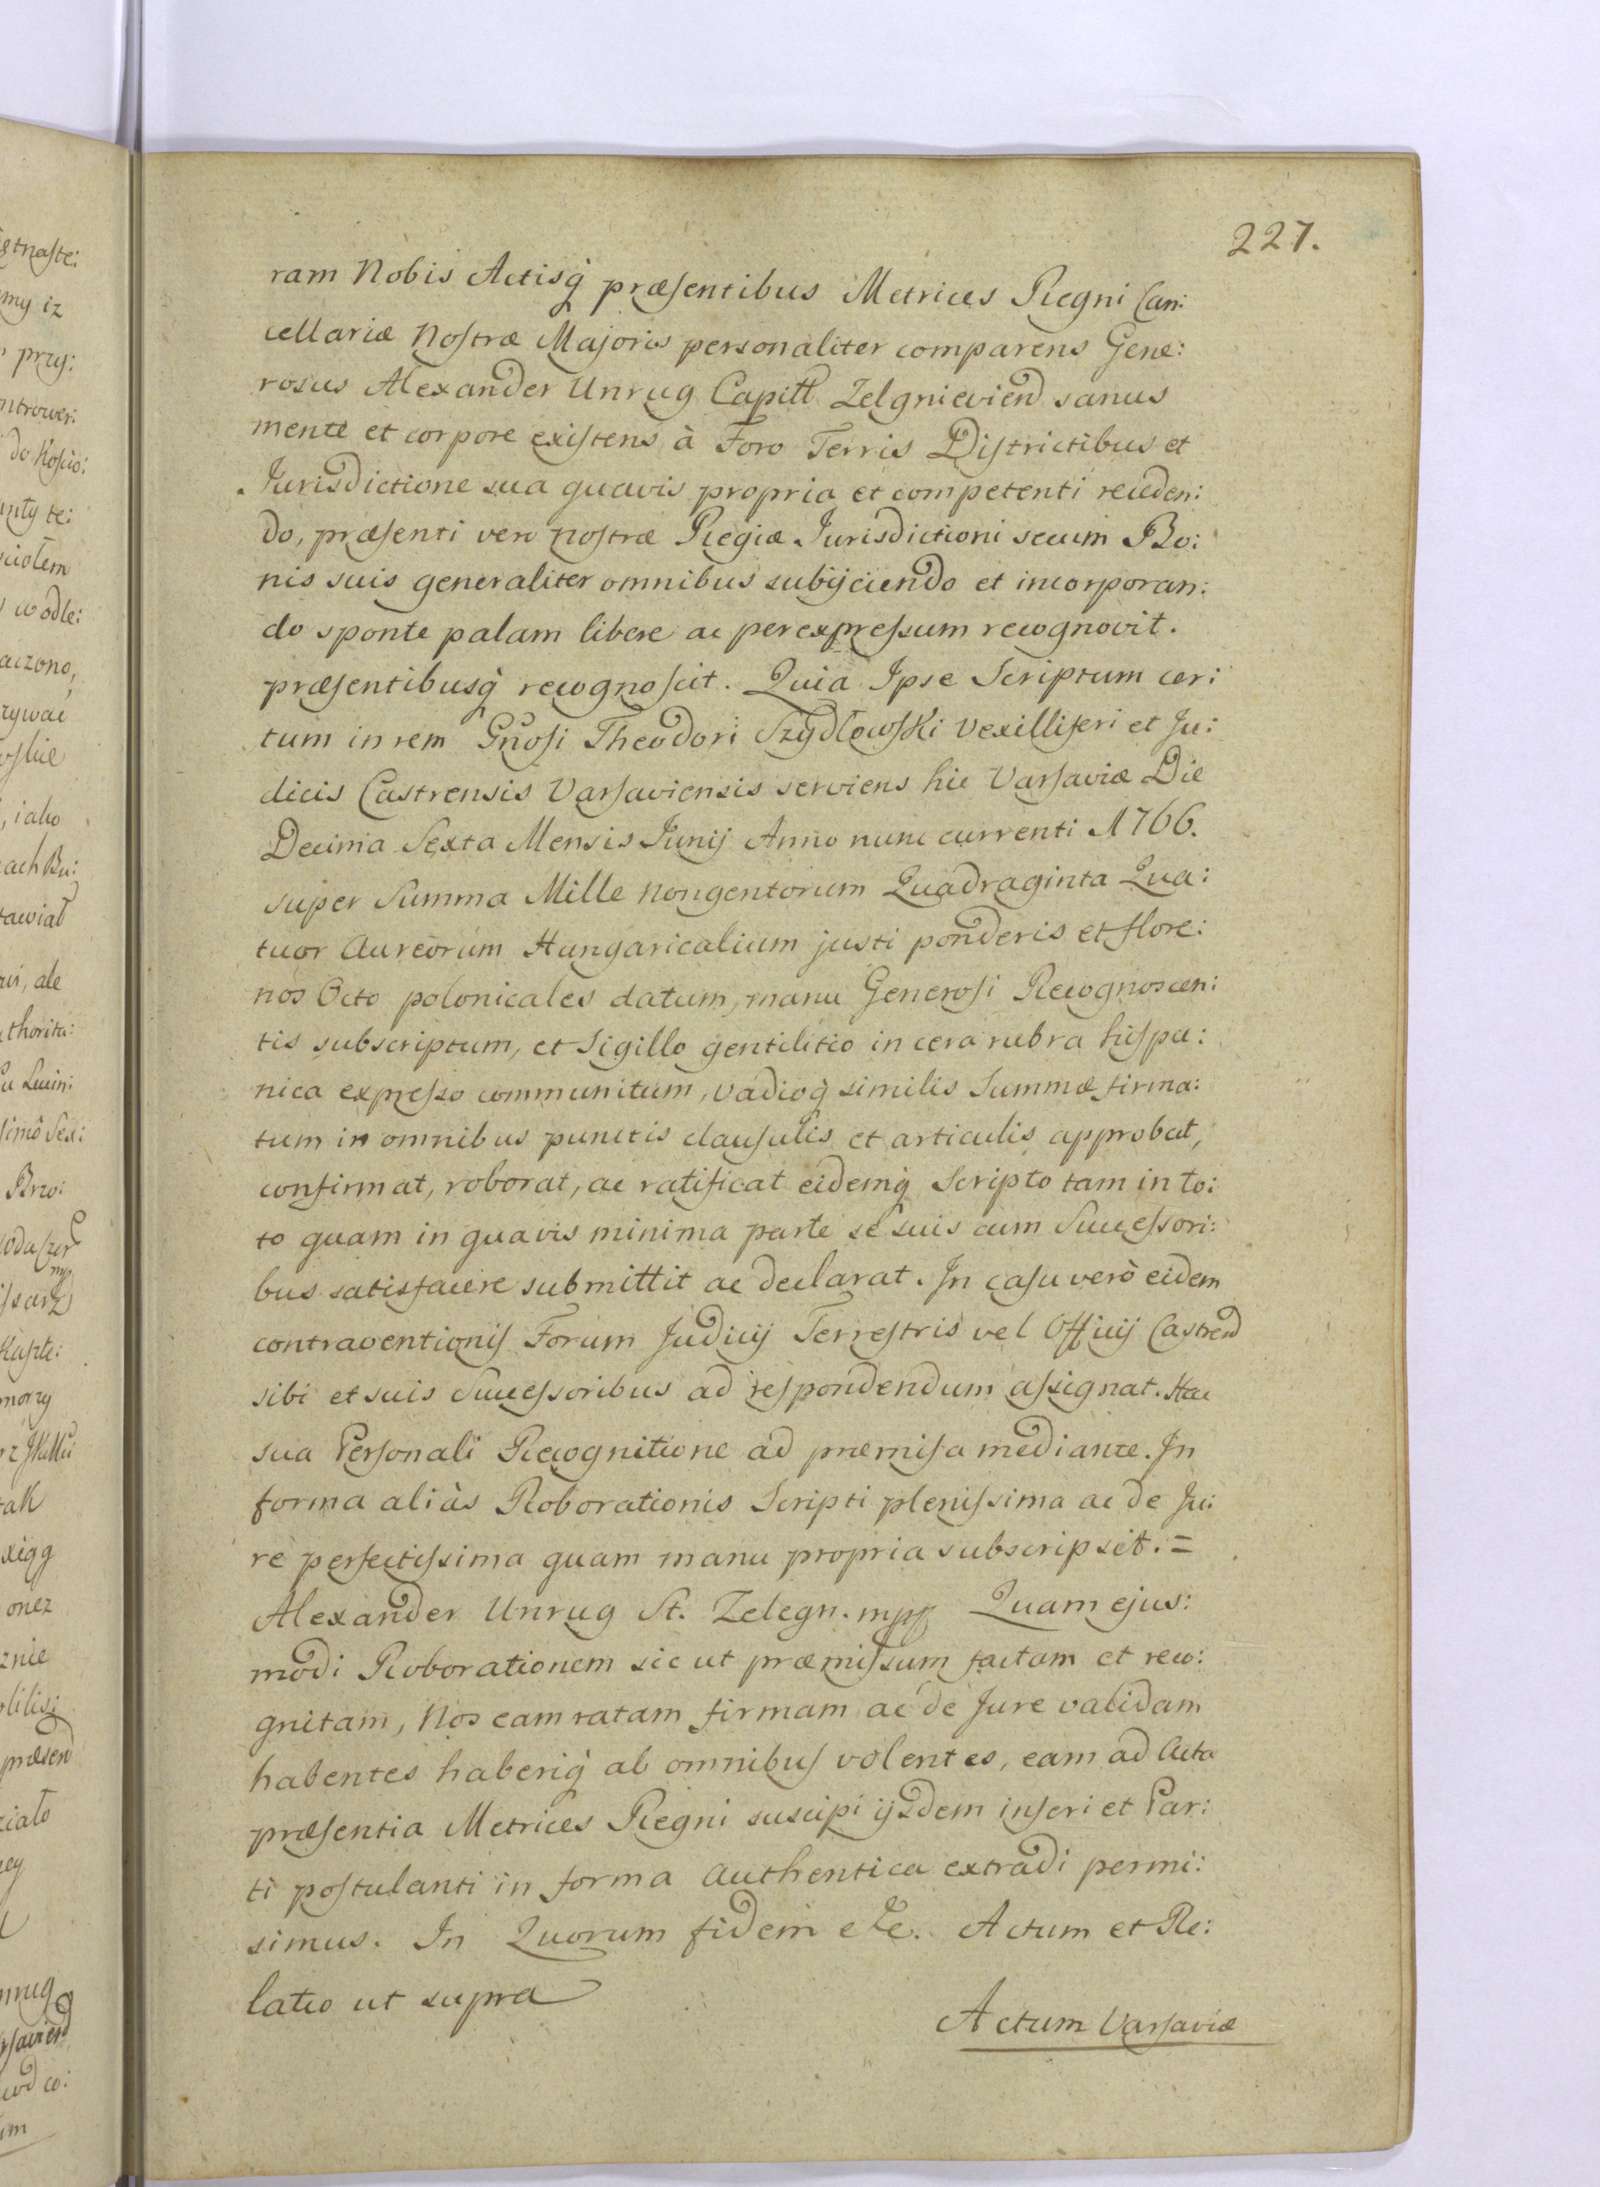 227.
ram Nobis Actisq́ præsentibus Metrices Regni Can:
cellariæ Nostræ Majoris personaliter comparens Gene:
rosus Alexander Unrug Capitt Zelgnieviens sanus
mente et corpore existens à Foro Terris Districtibus et
Jurisdictione sua quavis propria et competenti receden:
do, præsenti vero nostræ Regiæ Jurisdictioni secum Bo:
nis suis generaliter omnibus subijciendo et incorporan:
do sponte palam libere ac per expressum recognovit.
præsentibusq́ recognoscit. Quia Ipse Scriptum cer:
tum in rem Gnosi Theodori Szydłowski Vexilliferi et Ju:
dicis Castrensis Varsaviensis serviens hic Varsaviæ Die
Decima Sexta Mensis Junij Anno nunc currenti 1766.
super Summa Mille Nongentorum Quadraginta Qua:
tuor Aureorum Hungaricalium justi ponderis et flore:
nos Octo polonicales datum, manu Generosi Recognoscen:
tis subscriptum, et Sigillo gentilitio in cera rubra hispa:
nica expresso communitum, vadioq́ similis Summæ firma:
tum in omnibus punctis clausulis et articulis approbat,
confirmat, roborat, ac ratificat eidemq́ Scripto tam in to:
to quam in quavis minima parte se suis cum Successori:
bus satisfacere submittit ac declarat. In casu verò eidem
contraventionis Forum Judicij Terrestris vel Officij Castrens
sibi et suis Successoribus ad respondendum assignat. Hac
sua Personali Recognitione ad præmissa mediante. In
forma aliàs Roborationis Scripti plenissima ac de Ju:
re perfectissima quam manu propria subscripsit. =
Alexander Unrug St. Zelegn. mpp Quam ejus:
modi Roborationem sic ut præmissum factam et reco:
gnitam, Nos eam ratam firmam ac de Jure validam
habentes haberiq́ ab omnibus volentes, eam ad Acta
præsentia Metrices Regni suscipi ijsdem inseri et Par:
ti postulanti in forma authentica extradi permi:
simus. In Quorum fidem etc. Actum et Re:
latio ut supra
Actum Varsaviæ